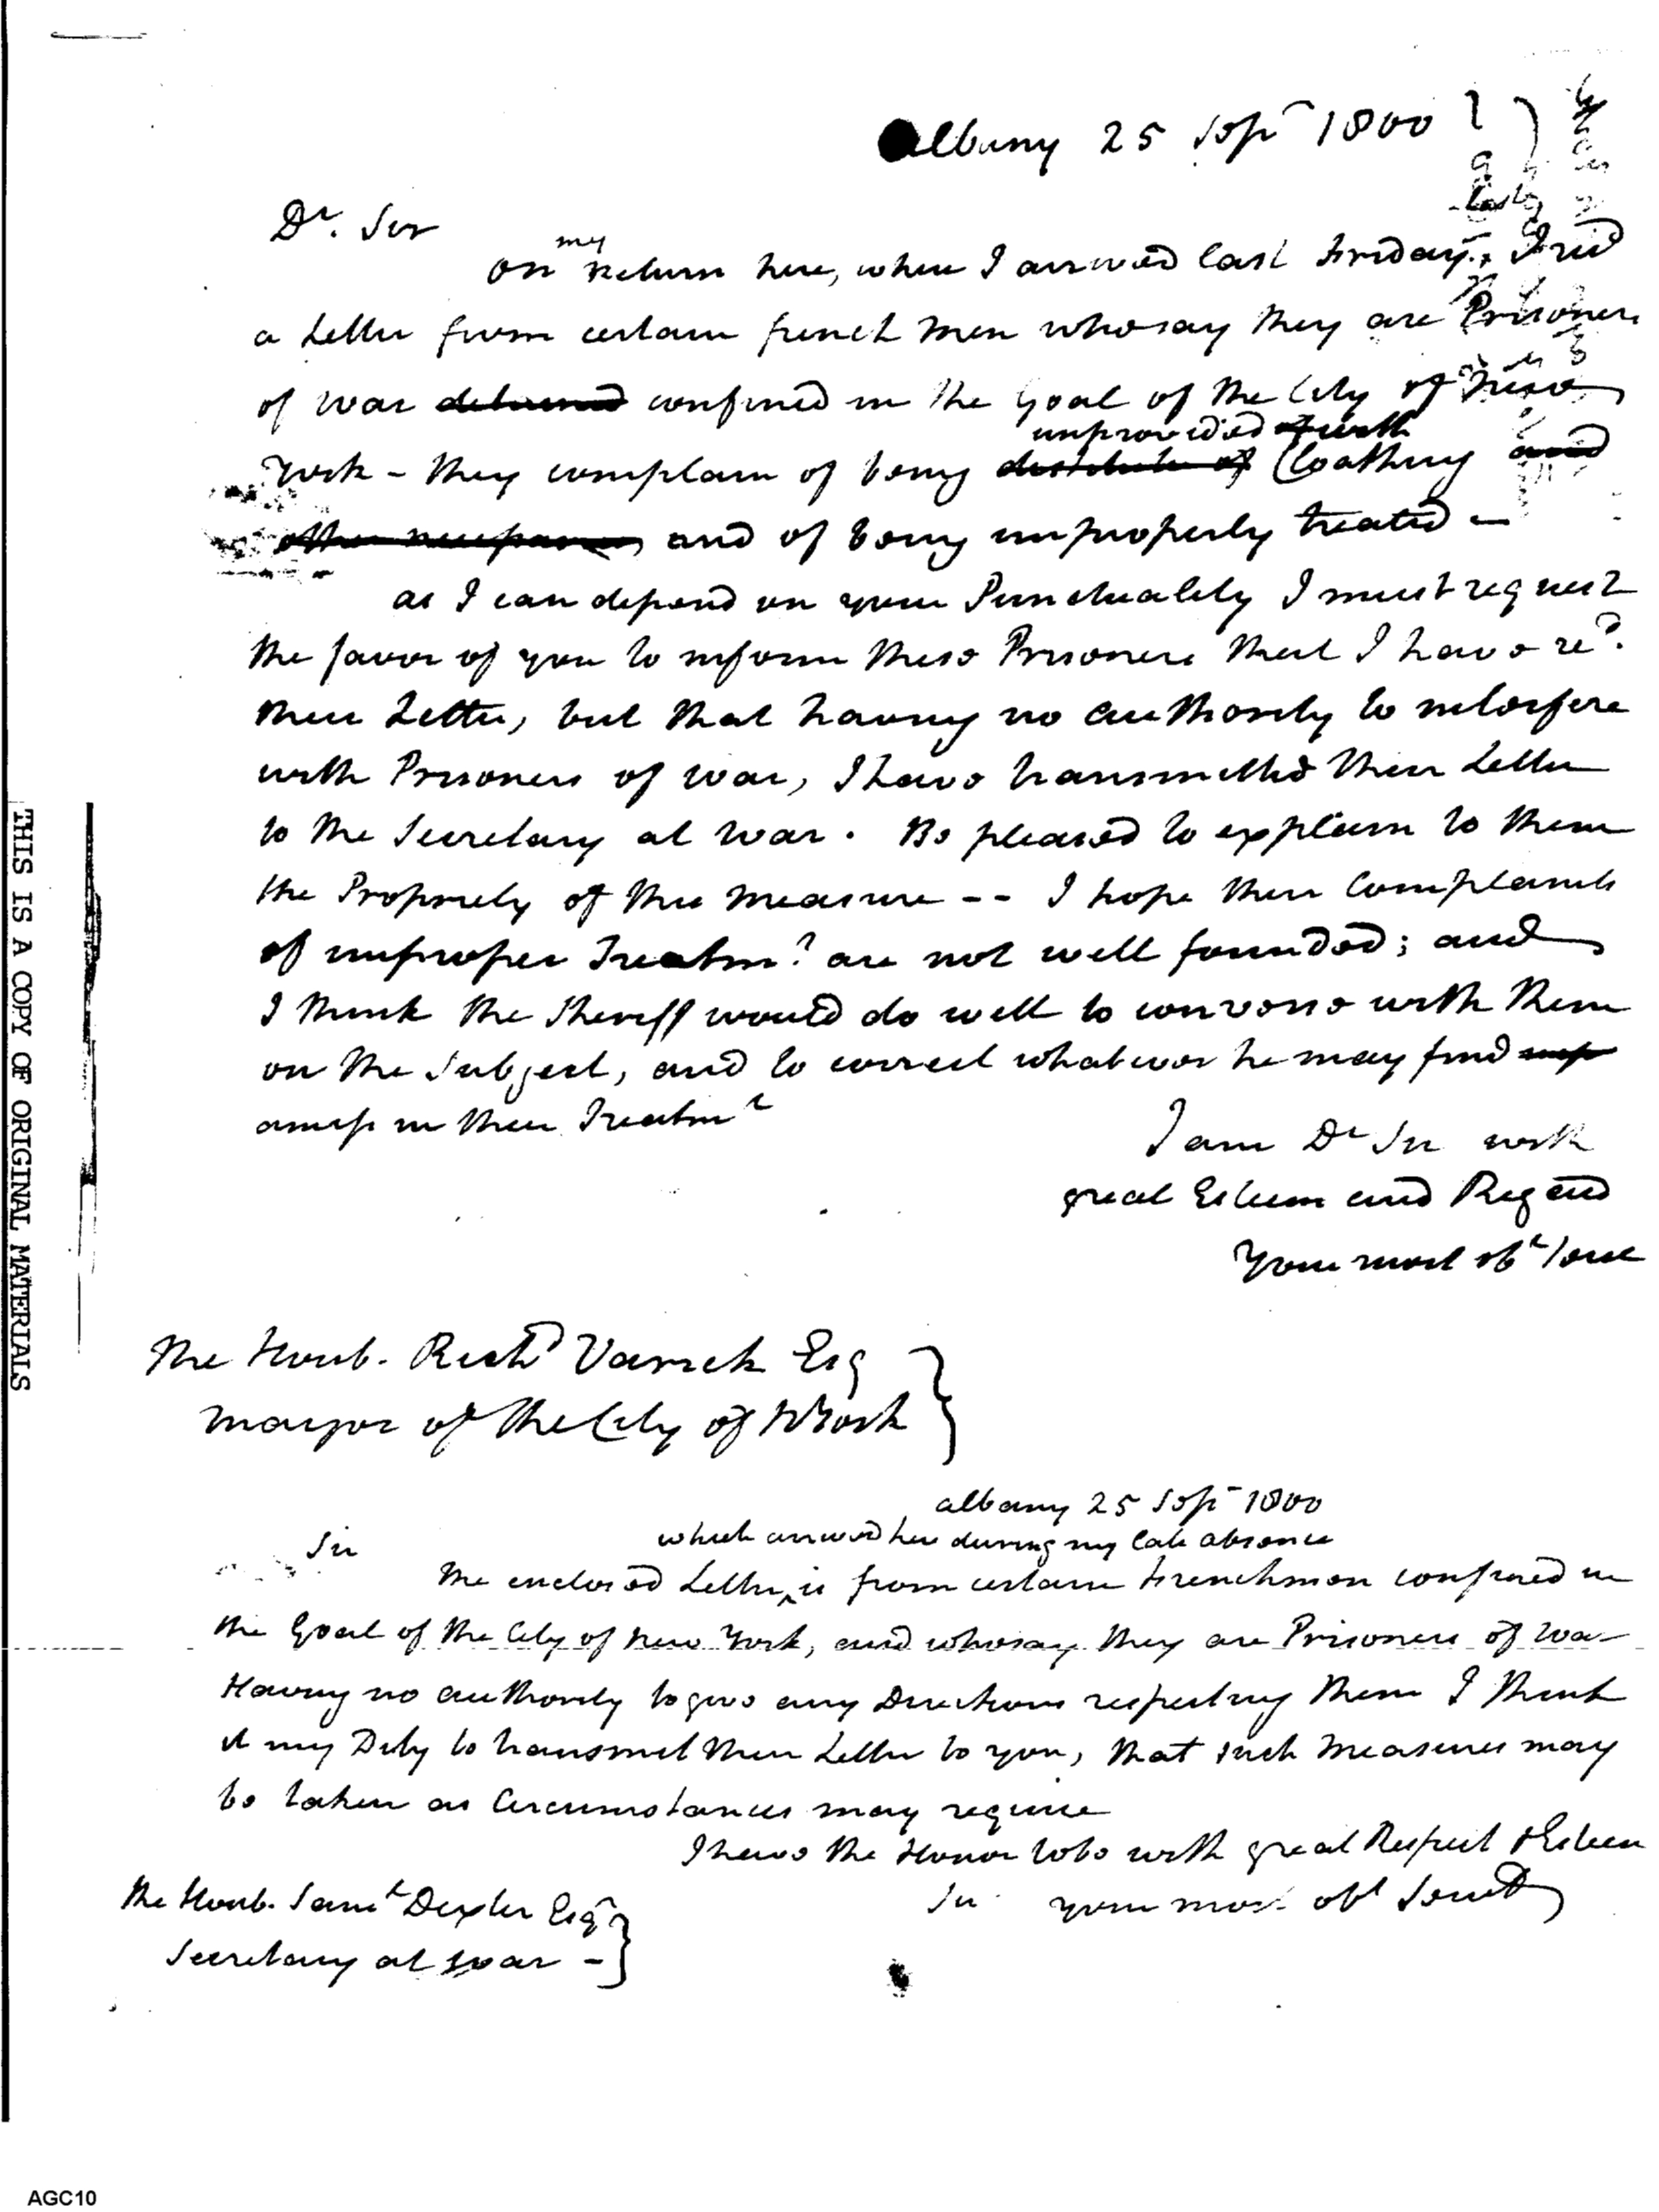 Albany 25 Sep 1800
Dr. Sir
my
On Return here, where I arrived last Friday, I recd
a Letter from certain french Men who say they are Prisoners
of War detained confined in the Goal of the City of New
unprovided of with
York - they complain of being destitute of Cloathing and
other necessaries and of being improperly treated -
as I can depend on your Punctuality I must request
the favor of you to inform these Prisoners that I have recd.
their Letter, but that having no authority to interfere
with Prisoners of war, I have transmitted their Letter
to the Secretary at War. Be pleased to explain to them
the Propriety of this measure -- I hope their Complaints
of improper Treatmt are not well founded; and
I think the Sheriff would do well to converse with them
on the Subject, and to correct whatever he may find imp
amiss in their Treatmt
I am Dr Sir with
great Esteem and Regard
Your most obt Servt
The Honb. Richd Varick Esq
Mayor of the City of NYork
albany 25 Sep 1800
which arrived here during my late absence
Sir
The enclosed Letter ^ is from certain Frenchmen confined in
the Goal of the City of New York, and who say they are Prisoners of War
Having no authority to give any Directions respecting them I think
it my Duty to transmit their Letter to you, that such Measures may
be taken as Circumstances may require
I have the Honor to be with great Respect & Esteem
Sir your most obt Servt
The Honb. Saml Dexter Esqr
Secretary at War -
THIS IS A COPY OF ORIGINAL MATERIALS
AGC10